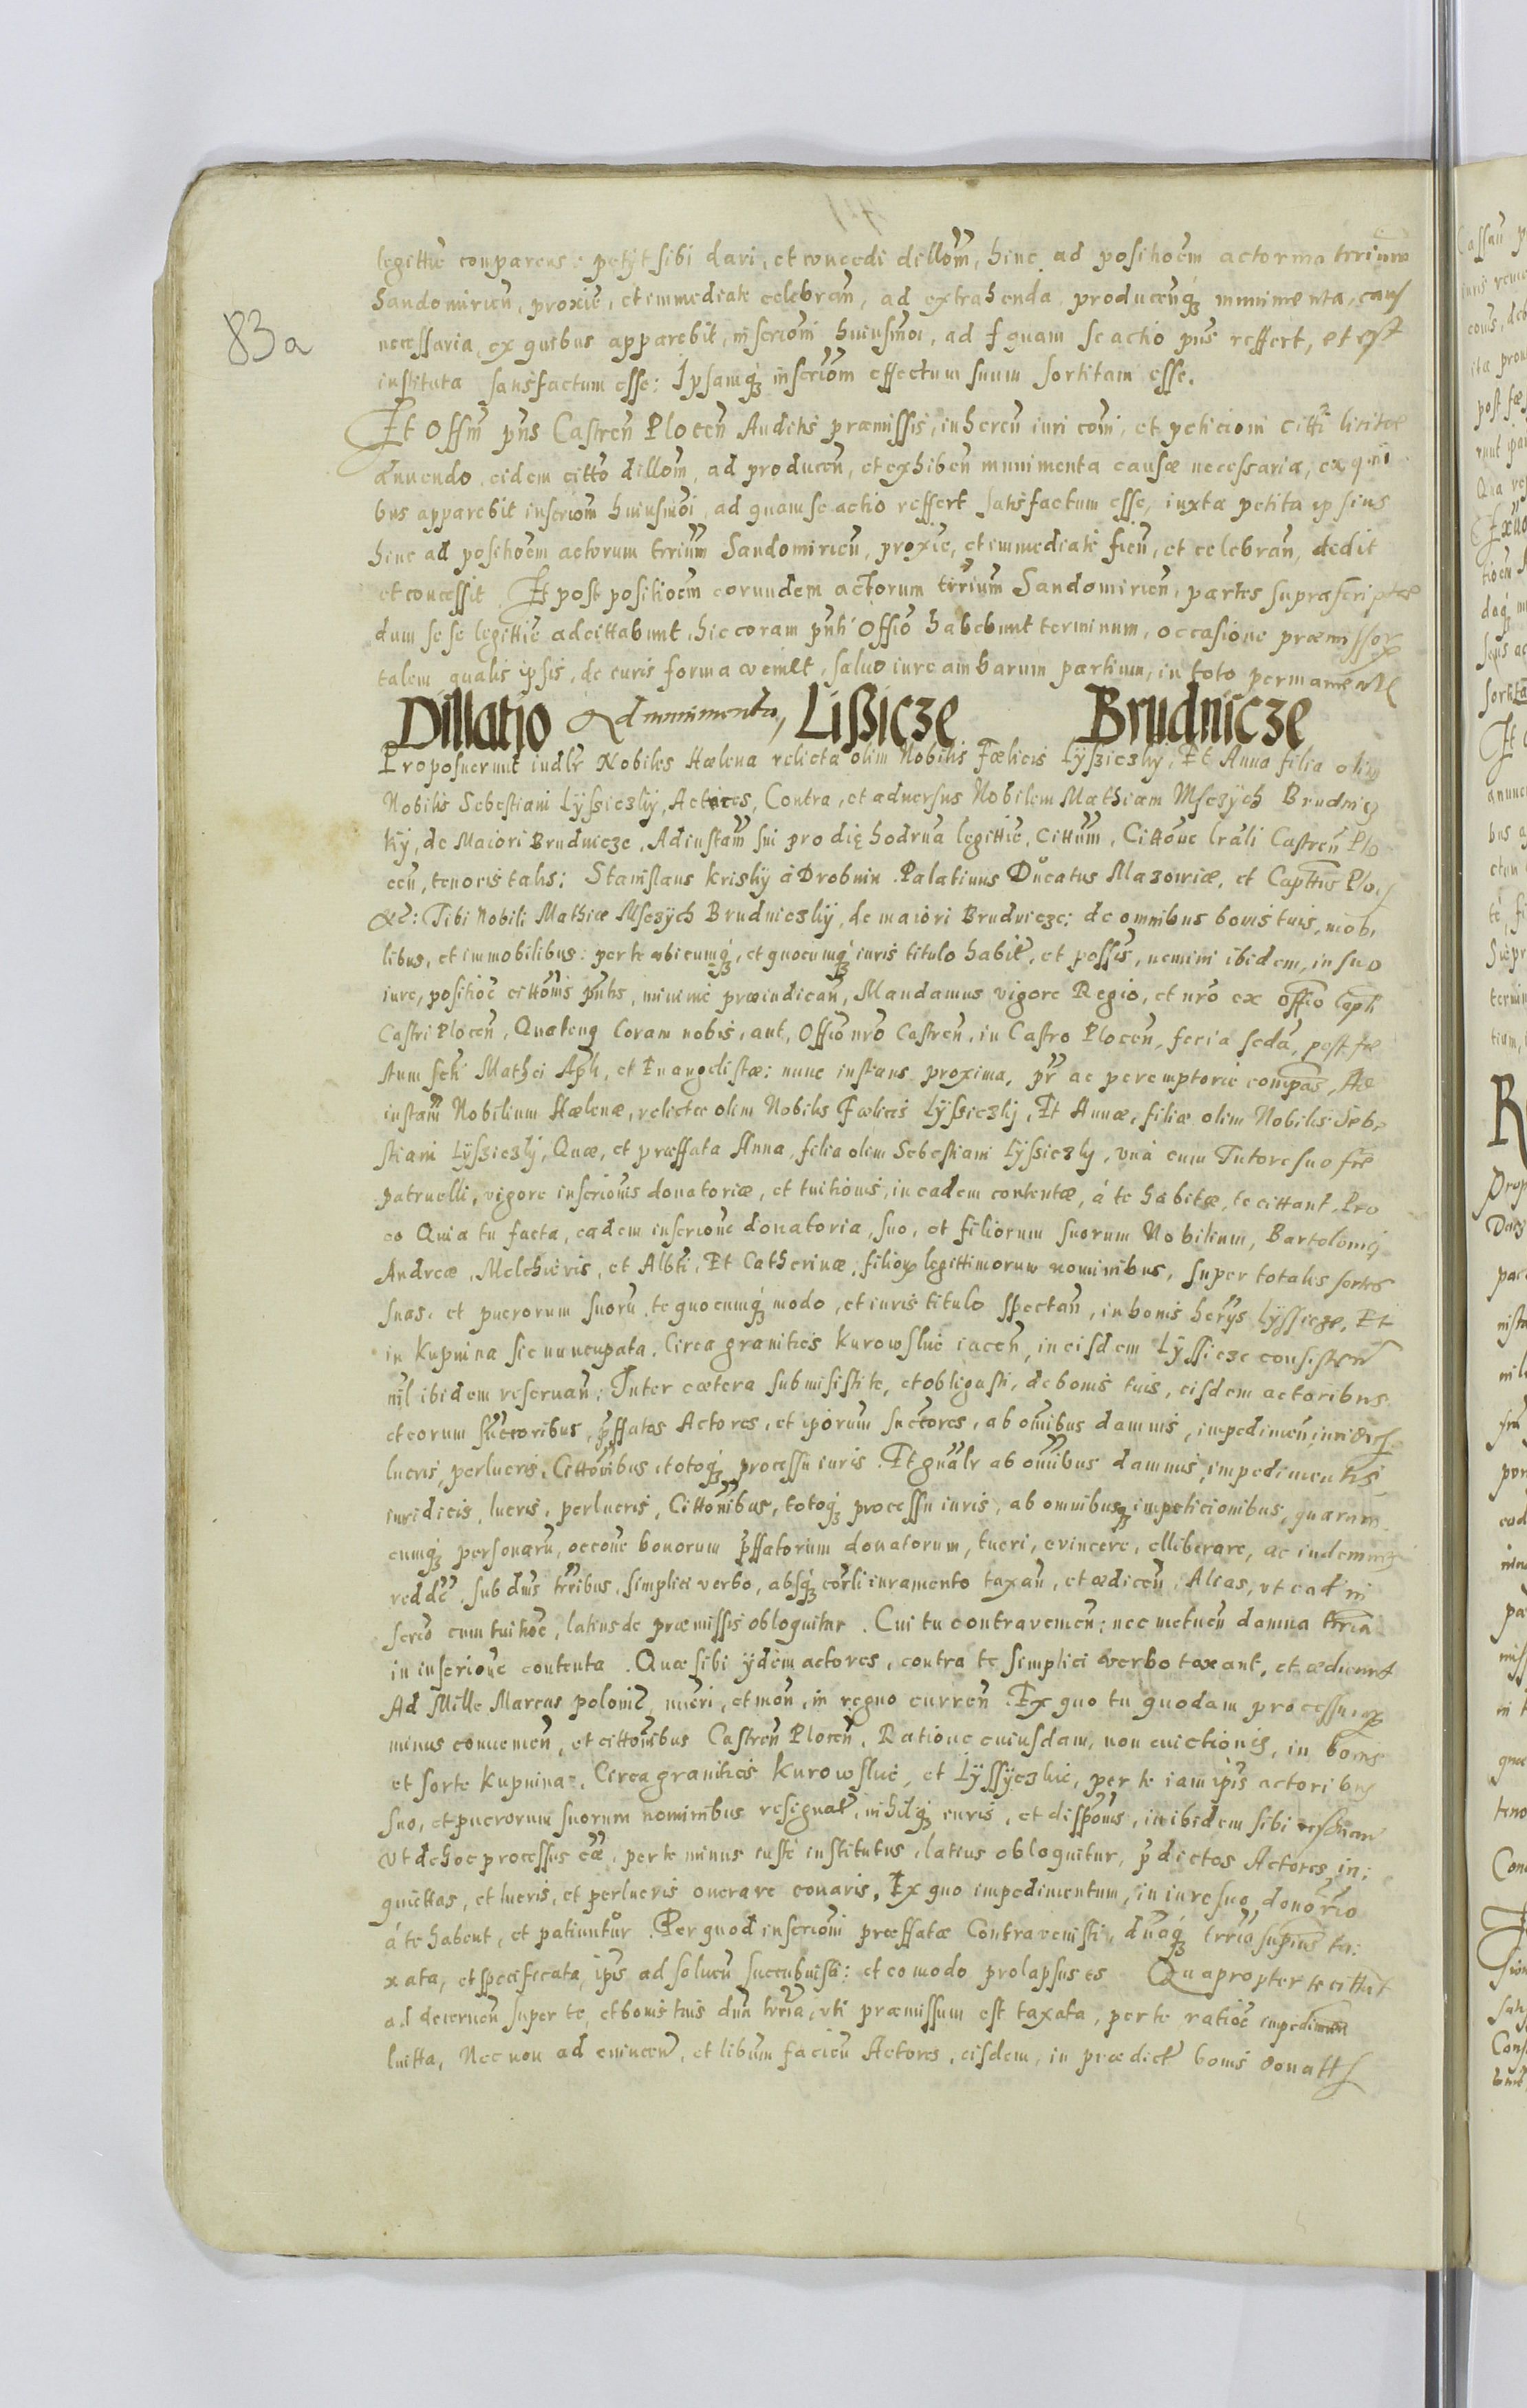 83a
legittime comparens: petijt sibi dari, et concedi dillom, hinc ad positioem actorum trrium
Sandomirien, proxie, et immediate celebran, ad extrahenda producenq3 munimenta, caus
necessaria, ex quibus apparebit, inscriom huiusmoi, ad quam se actio pns reffert, et est
instituta satisfactum esse: Ipsamq3 inscriom effectum suum sortitam esse.
Et Offm pns Castren Plocen Auditis præmissis, inheren iuri com, et peticioni citti licitæ
annuendo, eidem citto dillom, ad producen, et exhiben munimenta causæ necessaria, ex qui
bus apparebit inscriom huiusmoi, ad quam se actio reffert satisfactum esse, iuxta petita ipsius
hinc ad positioem actorum trrium Sandomirien, proxie, et immediate fien, et celebran, dedit
et concessit. Et post positioem eorundem actorum trrium Sandomirien, partes suprascriptæ
dum se se legittie adcittabunt, hic coram pnti Offio habebunt terminum, occasione præmissor
talem qualis ipsis, de iuris forma venit, saluo iure ambarum partium, in toto permanente
Dillatio Ad munimenta, Lißicze Brudnicze
Proposuerunt iudlr Nobiles Hælena relicta olim Nobilis Fælicis Lyßiczky, Et Anna filia olim
Nobilis Sebestiani Lyssiczky, Actrices, Contra, et aduersus Nobilem Mathiam Msczych Brudnicz
ky, de Maiori Brudnicze, Ad instam sui pro die hodrna legittie, Cittum, Cittone lrali Castren Plo
cen, tenoris talis: Stanislaus Krisky à Drobnin Palatinus Ducatus Mazoviæ, et Capttus Ploc
&c: Tibi Nobili Mathiæ Msczych Brudniczky, de maiori Brudnicze: de omnibus bonis tuis, mobi
libus, et immobilibus: per te ubicumq3, et quocumq3 iuris titulo habit, et possis, nemini ibidem, in suo
iure, positioe cittonis pntis, minime præiudican, Mandamus vigore Regio, et nro ex offio Capti
Castri Plocen, Quateng Coram nobis, aut, Offio nro Castren, in Castro Plocen, feria seda, post fæ
stum scti Mathei Apli, et Euangelistæ: nunc instans proxima, pr ac peremptorie compas, Ad
instam Nobilium Hælenæ, relictæ olim Nobilis Fælicis Lyssiczky, Et Annæ, filiæ olim Nobilis Sebe
stiani Lyssiczky, Quæ, et præffata Anna, filia olim Sebestiani Lyssiczky, vnà cum Tutore suo fre
patruelli, vigore inscrionis donatoriæ, et tuitionis, in eadem contentæ, á te habitæ, te cittant. Pro
eo Quia tu facta, eadem inscrione donatoria, suo, et filiorum suorum Nobilium, Bartolomei
Andreæ, Melchioris, et Albti, Et Catherinæ, filior legittimorum nominibus, super totalis sortes
suas, et puerorum suoru, te quocumq3 modo, et iuris titulo spectan, in bonis herijs Lyssicze, Et
in Kupnina sic nuncupata, Circa granities Kurowskie iacen, in eisdem Lyssicze consisten
nil ibidem reseruan: Inter cætera submisisti te, et obligasti, de bonis tuis, eisdem actoribus
et eorum succoribus, præffatas Actores, et iporum succores, ab omibus damnis, impedimen iuridicis
lucris, perlucris, Cittonibus, totoq3 processu iuris. Et gnalr ab omibus damnis, impedimentis,
iuridicis, lucris, perlucris, Cittonibus, totoq3 processu iuris, ab omnibusq3 impeticionibus, quarum
cumq3 personaru, occone bonorum præffatorum donatorum, tueri, evincere, elliberare, ac indemnes
redde, sub dnis trribus, simplici verbo, absq3 corli iuramento taxan, et ædicen, Alias, vt ead in
scrio cum tuitioe, latius de præmissis obloquitur. Cui tu contravenien; nec metuen damna trria
in inscrione contenta. Quæ sibi ijdem actores, contra te simplici verbo taxant, et ædicunt
Ad Mille Marcas polonic, nueri, et mon, in regno curren. Ex quo tu quodam processu
minus conuenien, et cittonibus Castren Plocen, Ratione cuiusdam, non euictionis, in bonis
et sorte Kupnina, Circa granities Kurowskie, et Lyssyczkie, per te iam ipis actoribus
suo, et puerorum suorum nominibus resignat, nihilq3 iuris, et disponis, in ibidem sibi reseruan
vt de hoc processus eæ, per te minus iustè institutus, latius obloquitur, prædictos Actores, in:
quiettas, et lucris, et perlucris onerare conaris. Ex quo impedimentum, in iure suo donorio
á te habent, et patiuntur. Per quod inscrioni præffatæ Contravenisti, dnaq3 trria supius ta:
xata, et specificata, ipis ad soluen succubuisti: et eo modo prolapsus es. Quapropter te cittat
ad decernen super te, et bonis tuis dna trria, vti præmissum est taxata, per te ratioe impedimen
luitta, Nec non ad euincen, et librum facien Actores, eisdem, in prædict bonis donatis